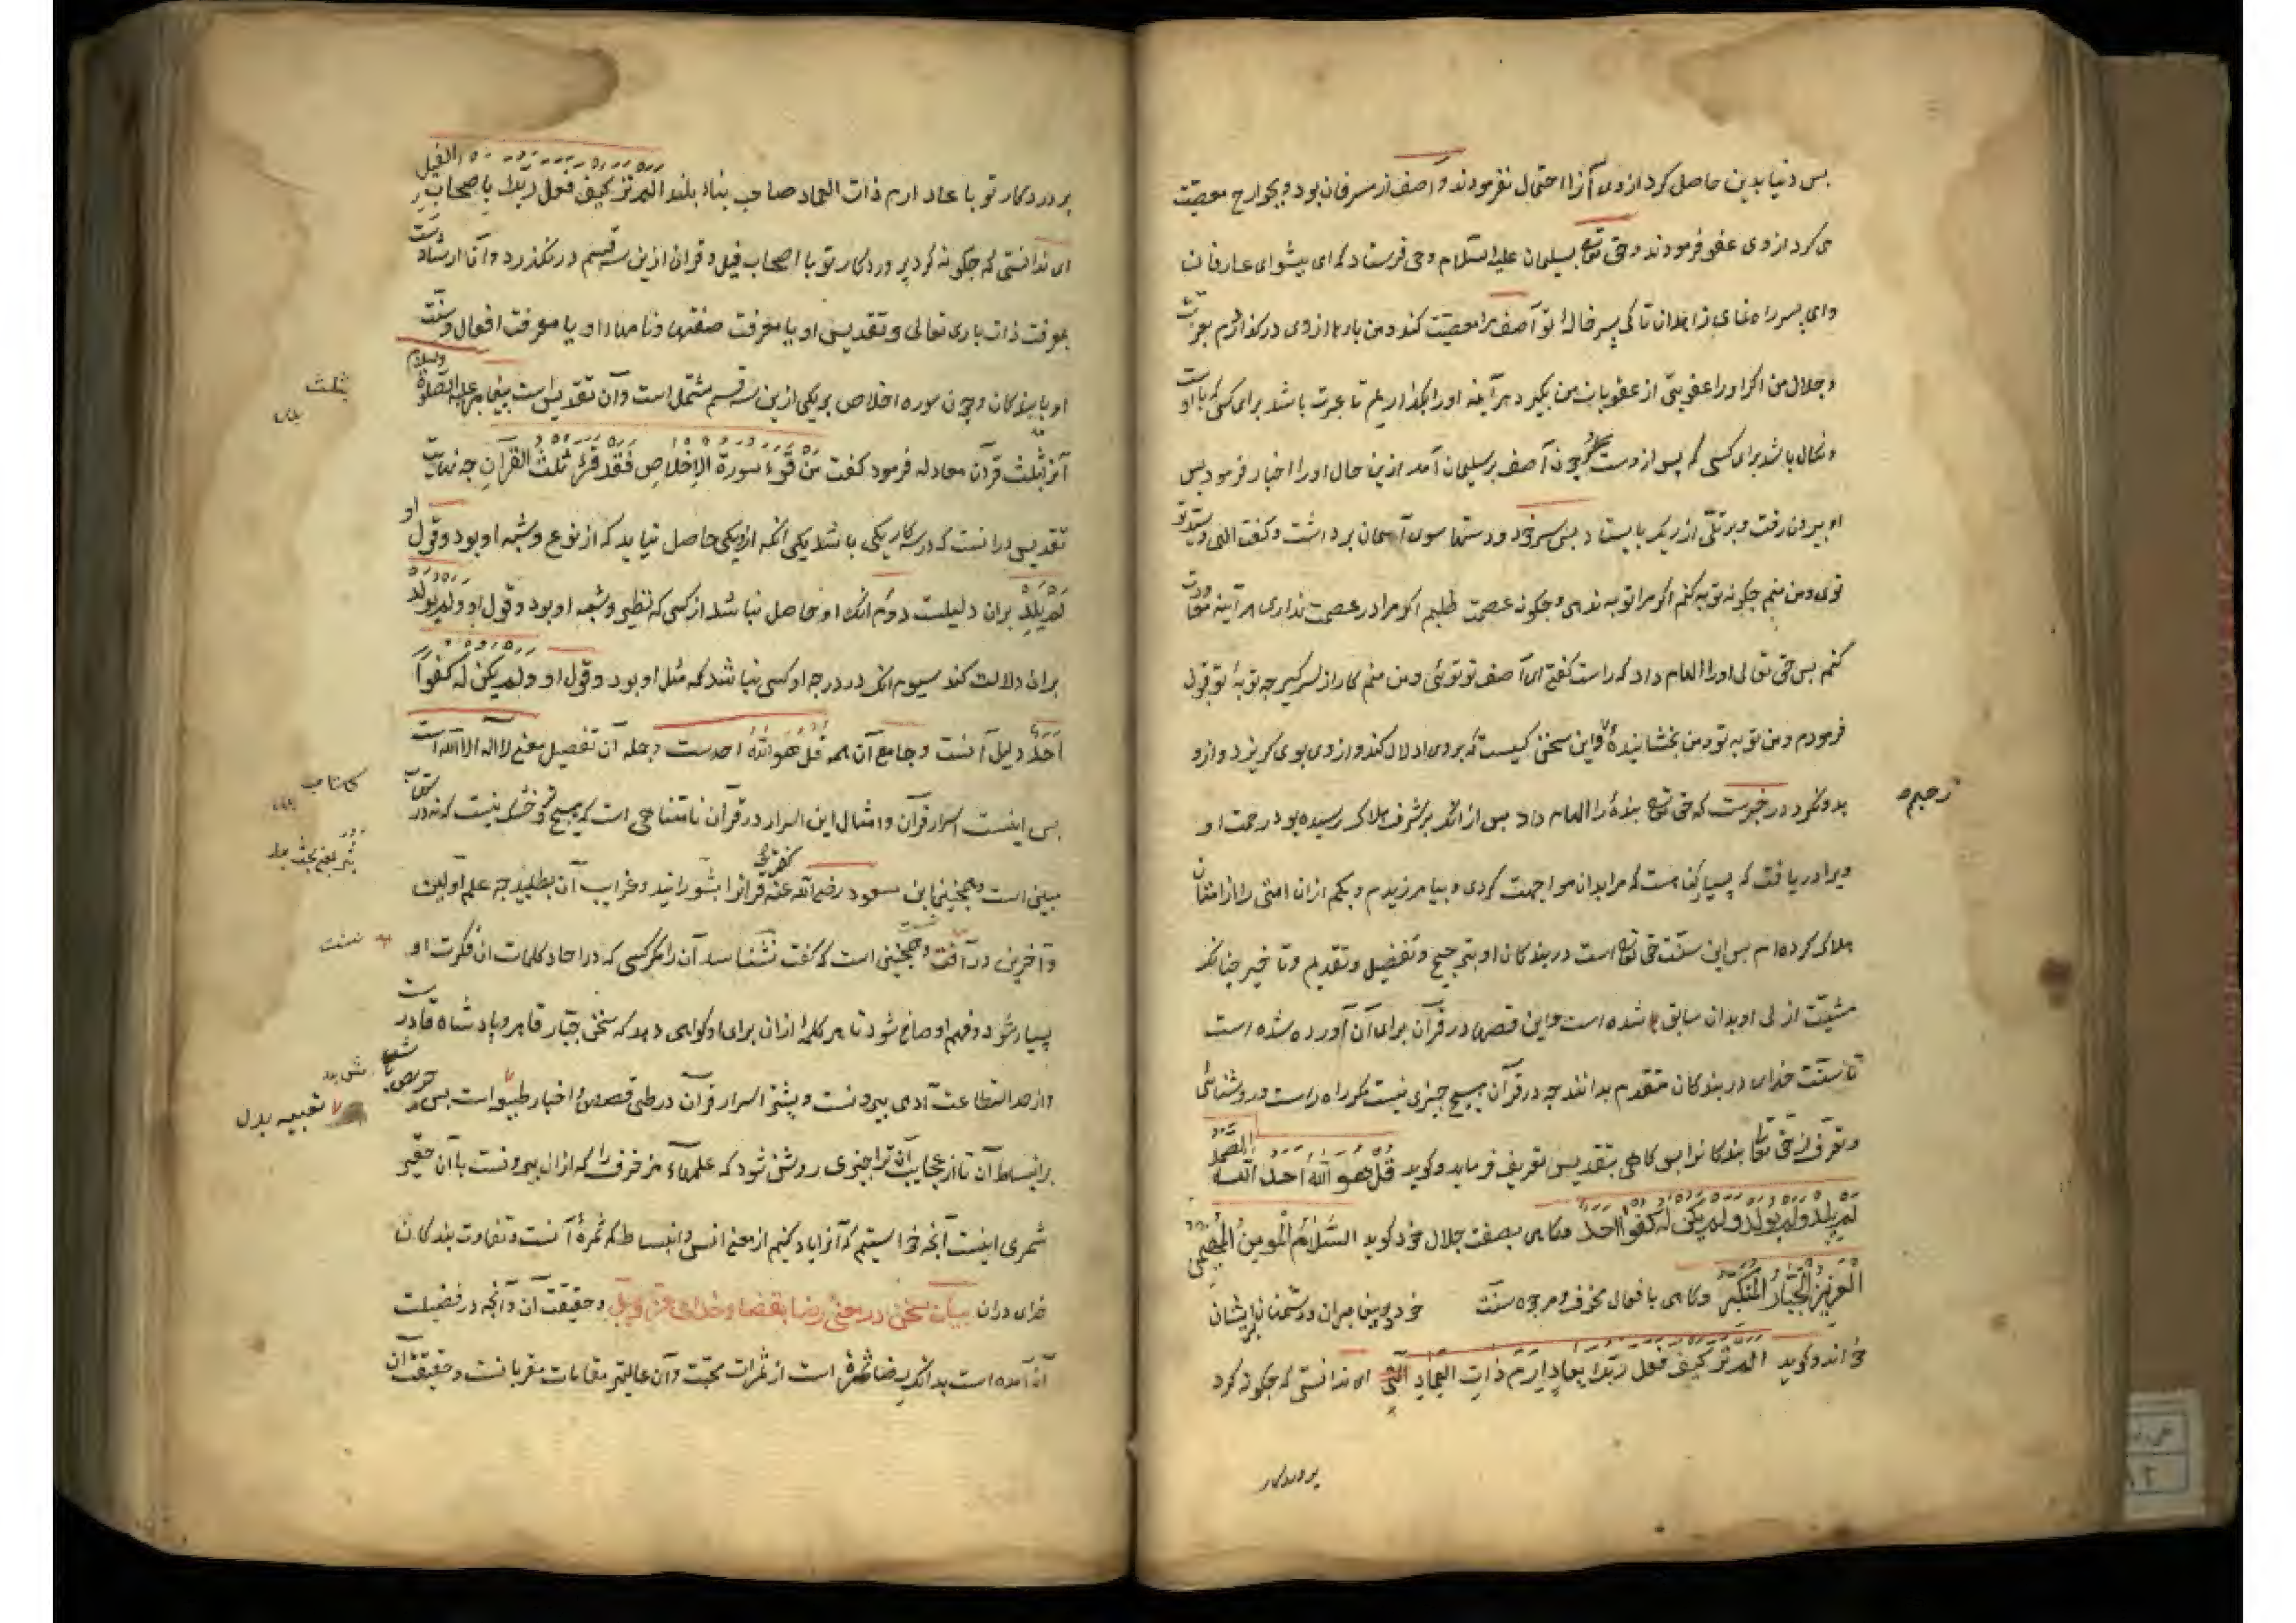 بس دنیا بدین حاصل کرد ازوی آنرا احتمال نفرمودند و آصف از مسرفان بود و بجوارح معصیت
می کرد ازوی عفو فرمودند و حق تع بسلیمان علیه السلام وحی فرستاد که ای پیشوای عارفان
و ای پسر راه نمای زاهدان تا کی پسر خالهٔ تو آصف مرا معصیت کند و من بارها ازوی درگذارم بعزت
و جلال من اگر او را عقوبتی از عقوبات من بگیرد هر آینه او را بگذاریم تا عبرت باشد برای کسی که با اوست
و نکال باشد برای کسی که پس از وست چون آصف بر سلیمان آمد ازین حال او را اخبار فرمود بس
او بیرون رفت و بر تلی از ریگ بایستاد بس سر خود و دستها سوی آسمان برداشت و گفت الهی و سیدی تو
توی و من منم چگونه توبه کنم اگر مرا توبه ندهی و چگونه عصمت طلبم اگر مرا در عصمت نداری هر آینه معاودت
کنم بس حق تعالی او را الهام داد که راست گفتی ای آصف تو توئی و من منم کار از سر گیر چه توبهٔ تو قبول
فرمودم و من توبه تو و من بخشاینده و این سخن کیست که بروی ادلال کند و ازوی بوی گریزد و ازو
بدو نگرد و در خبرست که حق تع بندهٔ را الهام داد بس از آنک بر شرف هلاک رسیده بود
رحیم
ویرا دریافت که بسیار گناهست که مرا بدان مواجهت کردی و بیامرزیدم و بکم ازان امتی را از امتان
هلاک کرده ام بس این سنت حق تع است در بندگان او بترجیح و تفضیل و تقدیم و تاخیر چنانک
مشیت ازلی او بدان سابق شده است و این قصص در قرآن برای آن آورده شده است
تا سنت خدای در بندگان متقدم بدانند چه در قرآن هیچ چیزی نیست مگر راه راست و روشنائی
و تعرف از حق تع بندگانرا بس گاهی بتقدیس تعریف فرماید و گوید قُل هو اللهُ احد الله الصمد
لم یلد ولم یولد ولم یکن له کفوا احد و گاهی بصفت جلال خود گوید السلام المومن المهیمن
العزیز الجبار المتکبر و گاهی بافعال مخوف و مرجو سنت خود و پیغامبران و دشمنان برایشان
خواند و گوید الم تر کیف فعل ربک بعاد ارم ذات العماد التی ای ندانستی که چگونه کرد
پروردکار
پروردکار تو با عاد ارم ذات العماد صاحب بناء بلند الم تر کیف فعل ربک باصحاب الفیل
ای ندانستی که چگونه کرد پروردکار تو با اصحاب فیل و قرآن ازین سه قسم درنگذرد و آن ارشادست
بمعرفت ذات باری تعالی و تقدیس او یا معرفت صفتها و نامهاء او یا معرفت افعال و سنت
او با بندگان و چون سوره اخلاص بر یکی ازین سه قسم مشتمل است و آن تقدیس است پیغامبر علیه الصلوة والسلام
ثلث
آنرا بثلث قرآن معادله فرمود گفت مَن قرء سورة الاخلاص فقد قرء ثلث القرآن چه نهایت
تقدیس درانست که در سه کار یکی باشد یکی انکه ازو یکی حاصل نیاید که از نوع و شبه او بود و قول او
لم یلد بران دلیلست دوم انک او حاصل نباشد از کسی که نظیر و شبه او بود و قول او و لم یولد
بران دلالت کند سیوم انک در درجه او کسی نباشد که مثل او بود و قول او و لم یکن له کفواً
احدٌ دلیل آنست و جامع آن همه قل هو الله احدست و جمله آن تفصیل معنی لا اله الا الله است
بس اینست اسرار قرآن و امثال این اسرار در قرآن نامتناهی است که هیچ تر و خشک نیست که نه در کتاب
کتاب
مبین است و همچنین ابن مسعود رضی الله عنه گفت قرآنرا بشورانید و غرایب آن بطلبید چه علم اولین
و آخرین در آنست و همچنین است که گفت نشناسد آن را مگر کسی که در آحاد کلمات آن فکرت او
بسیار شود و فهم او صافی شود تا هر کلمهٔ ازان برای او گواهی دهد که سخن جبار قاهر و پادشاه قادرست
و از حد استطاعت آدمی بیرونست و بیشتر اسرار قرآن در طی قصص و اخبار است بس حریص
تعبیه بدل
بر انبساط آن تا از عجایب آن ترا چیزی روشن شود که علمهاء مزخرف را که ازان بیرونست با آن حقیر
شمری اینست آنچه خواستیم که آنرا یاد کنیم از معنی انس و انبساط که ثمرهٔ آنست و تفاوت بندگان
خدای دران بیان سخن در معنی رضا بقضاء خدای عز و جل و حقیقت آن و آنچه در فضیلت
آن آمده است بدانک رضا ثمرهٔ است از ثمرات محبت و آن عالیتر مقامات مقربانست و حقیقت آن